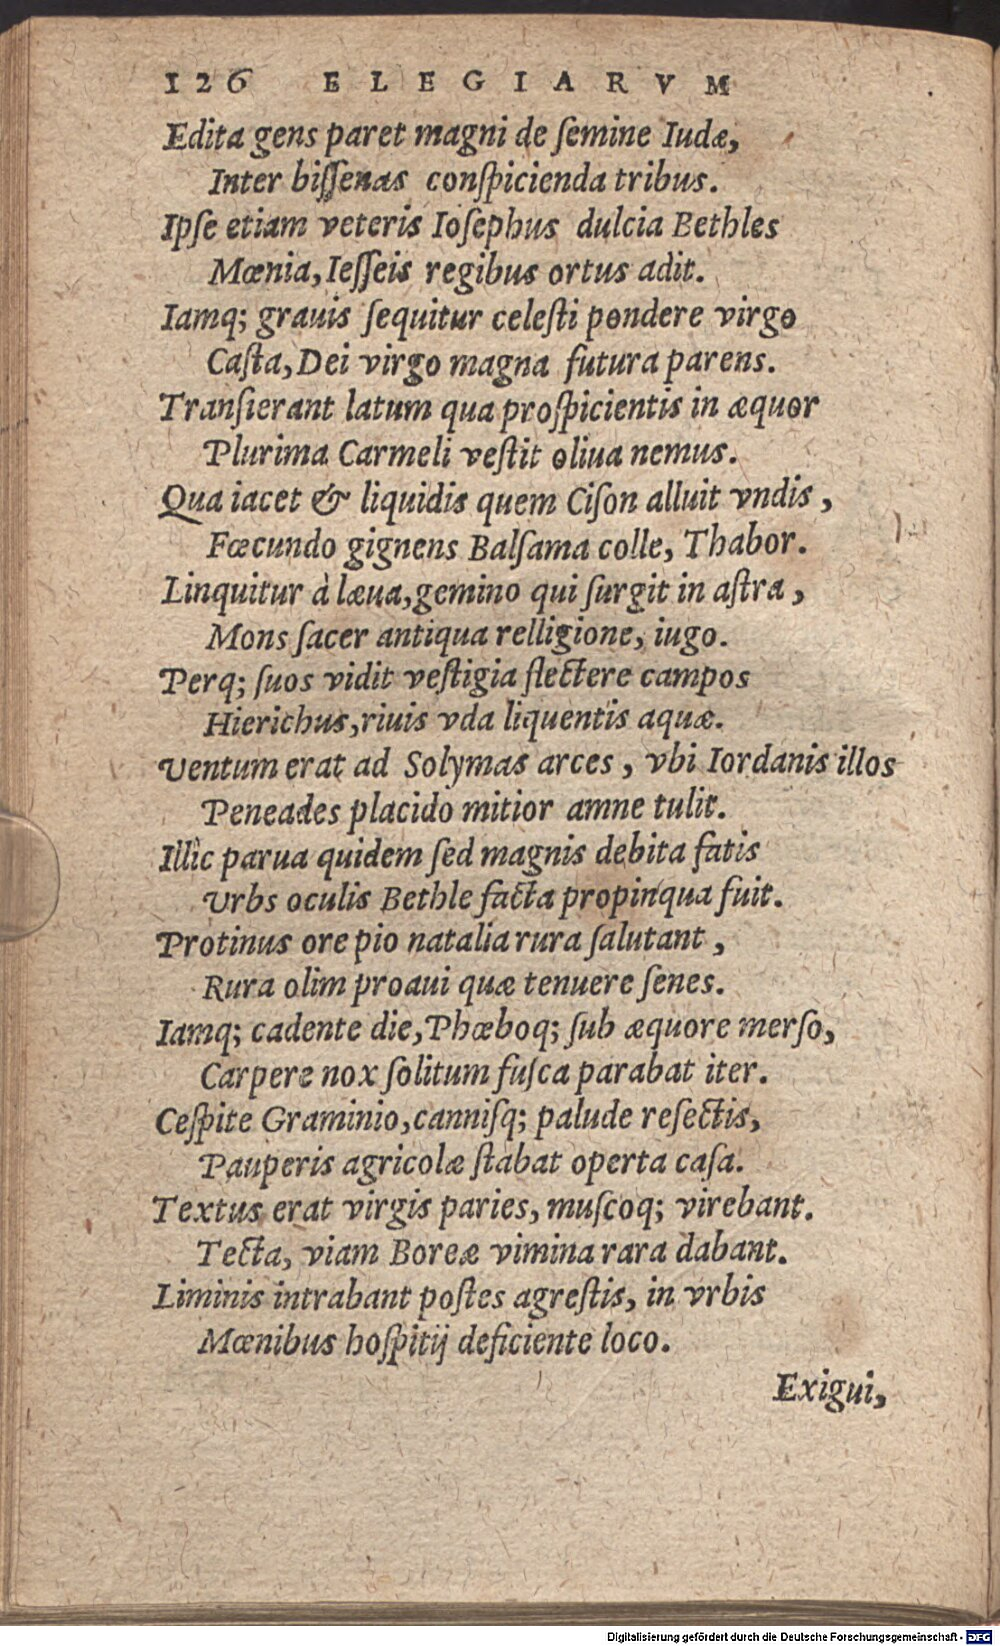 126 ELEGIARVM
Edita gens paret magni de ſemine Iudæ,
Inter biſſenas conſpicienda tribus.
Ipſe etiam veteris Ioſephus dulcia Bethles
Mœnia, Ieſſeis regibus ortus adit.
Iamq; grauis ſequitur celeſti pondere virgo
Caſta, Dei virgo magna futura parens.
Tranſierant latum qua proſpicientis in æquor
Plurima Carmeli veſtit oliua nemus.
Qua iacet & liquidis quem Ciſon alluit vndis,
Fœcundo gignens Balſama colle, Thabor.
Linquitur à læua, gemino qui ſurgit in aſtra,
Mons ſacer antiqua relligione, iugo.
Perq; ſuos vidit veſtigia flectere campos
Hierichus, riuis vda liquentis aquæ.
Ventum erat ad Solymas arces, vbi Iordanis illos
Peneades placido mitior amne tulit.
Illîc parua quidem ſed magnis debita fatis
Vrbs oculis Bethle facta propinqua fuit.
Protinus ore pio natalia rura ſalutant,
Rura olim proaui quæ tenuere ſenes.
Iamq; cadente die, Phœboq; ſub æquore merſo,
Carpere nox ſolitum fuſca parabat iter.
Ceſpite Graminio, canniſq; palude reſectis,
Pauperis agricolæ ſtabat operta caſa.
Textus erat virgis paries, muſcoq; virebant.
Tecta, viam Boreæ vimina rara dabant.
Liminis intrabant poſtes agreſtis, in vrbis
Mœnibus hoſpitij deficiente loco.
Exigui,
Digitalisierung gefördert durch die Deutsche Forschungsgemeinschaft - DFG